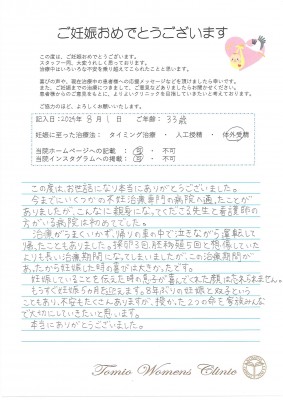 ご妊娠おめでとうございます
この度は、ご妊娠おめでとうございます。
スタッフ一同、大変うれしく思っております。
治療中はいろいろな不安を乗り越えてこられたことと思います。
喜びの声や、現在治療中の患者様への応援メッセージなどを頂けましたら幸いです。
また、ご妊娠までの治療につきまして、ご意見などありましたらお聞かせください。
患者様からのご意見をもとに、よりよいクリニックを目指していきたいと考えております。
ご協力のほど、よろしくお願いいたします。
記入日:2025年 8月 1日 ご年齢: 33歳
妊娠に至った治療法: タイミング治療 ・ 人工授精 ・ 体外受精
当院ホームページへの記載 : 可 ・ 不可
当院インスタグラムへの掲載 : 可 ・ 不可
この度は、お世話になり本当にありがとうございました。
今までにいくつかの不妊治療専門の病院へ通ったことが
ありましたが、こんなに親身になってくださる先生と看護師の
方がいる病院は初めてでした。
治療がうまくいかず、帰りの車で泣きながら運転して
帰ったこともありました。採卵3回、胚移植5回と想像していた
よりも長い治療期間になってしまいましたが、この治療期間が
あったから妊娠した時の喜びは大きかったです。
妊娠していることを伝えた時の息子が喜んでくれた顔は忘れられません。
もうすぐ妊娠5ヵ月を迎えます。8年ぶりの妊娠と双子という
こともあり、不安もたくさんありますが、授かった2つの命を家族みんな
で大切にしていきたいと思います。
本当にありがとうございました。
Tomio Womens Clinic